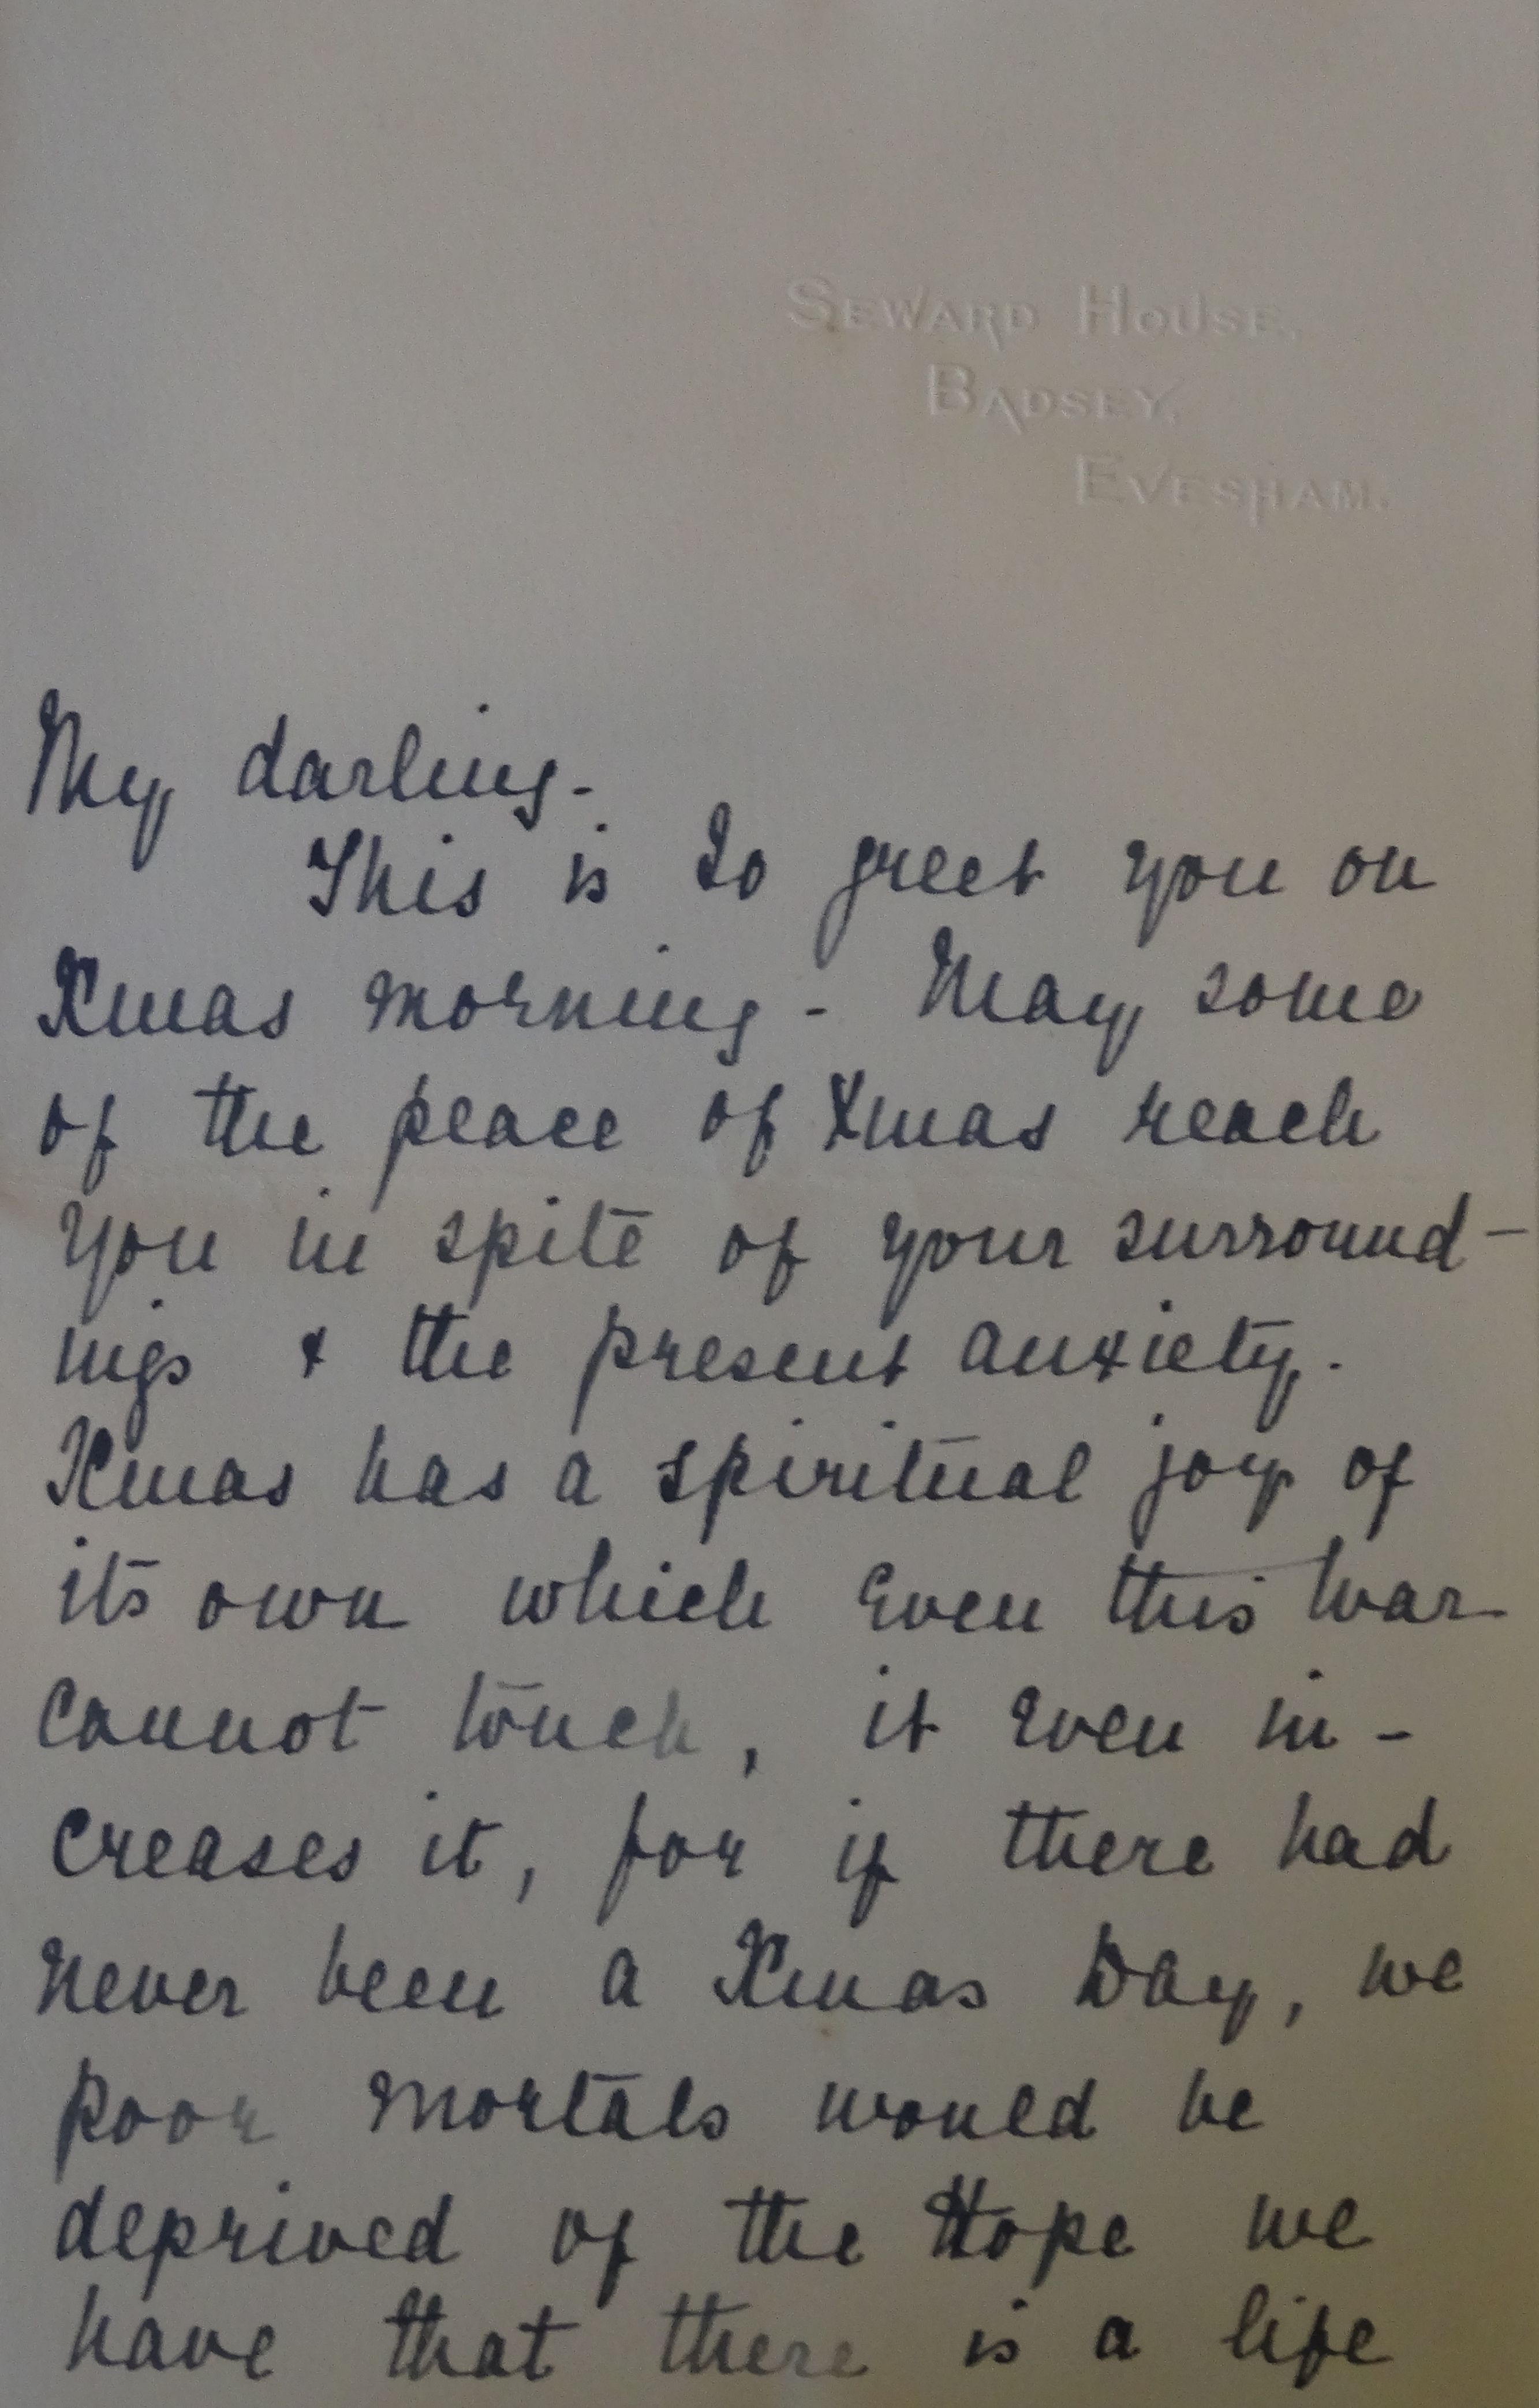 SEWARD HOUSE,
BADSEY,
EVESHAM.
My darling -
This is to greet you on
Xmas morning - May some
of the peace of Xmas reach
you in spite of your surround-
ings & the present anxiety.
Xmas has a spiritual joy of
its own which even this war
cannot touch, it even in-
creases it, for if there had
never been a Xmas Day, we
poor mortals would be
deprived of the Hope we
have that there is a life